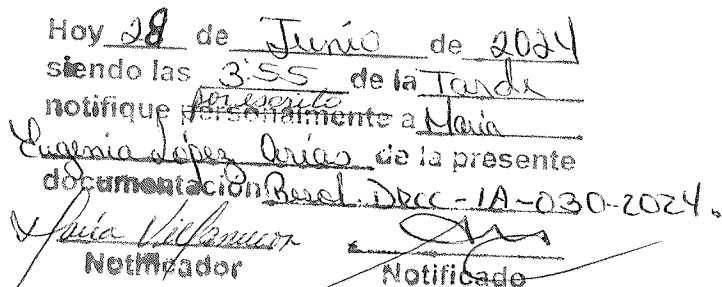 Hoy 28 de Junio de 2024
siendo las 3:55 de la Tarde
por escrito
notifique personalmente a Maria
Eugenia López Arias de la presente
documentación Resol. DRCC-IA-030-2024.
Notificador Notificado